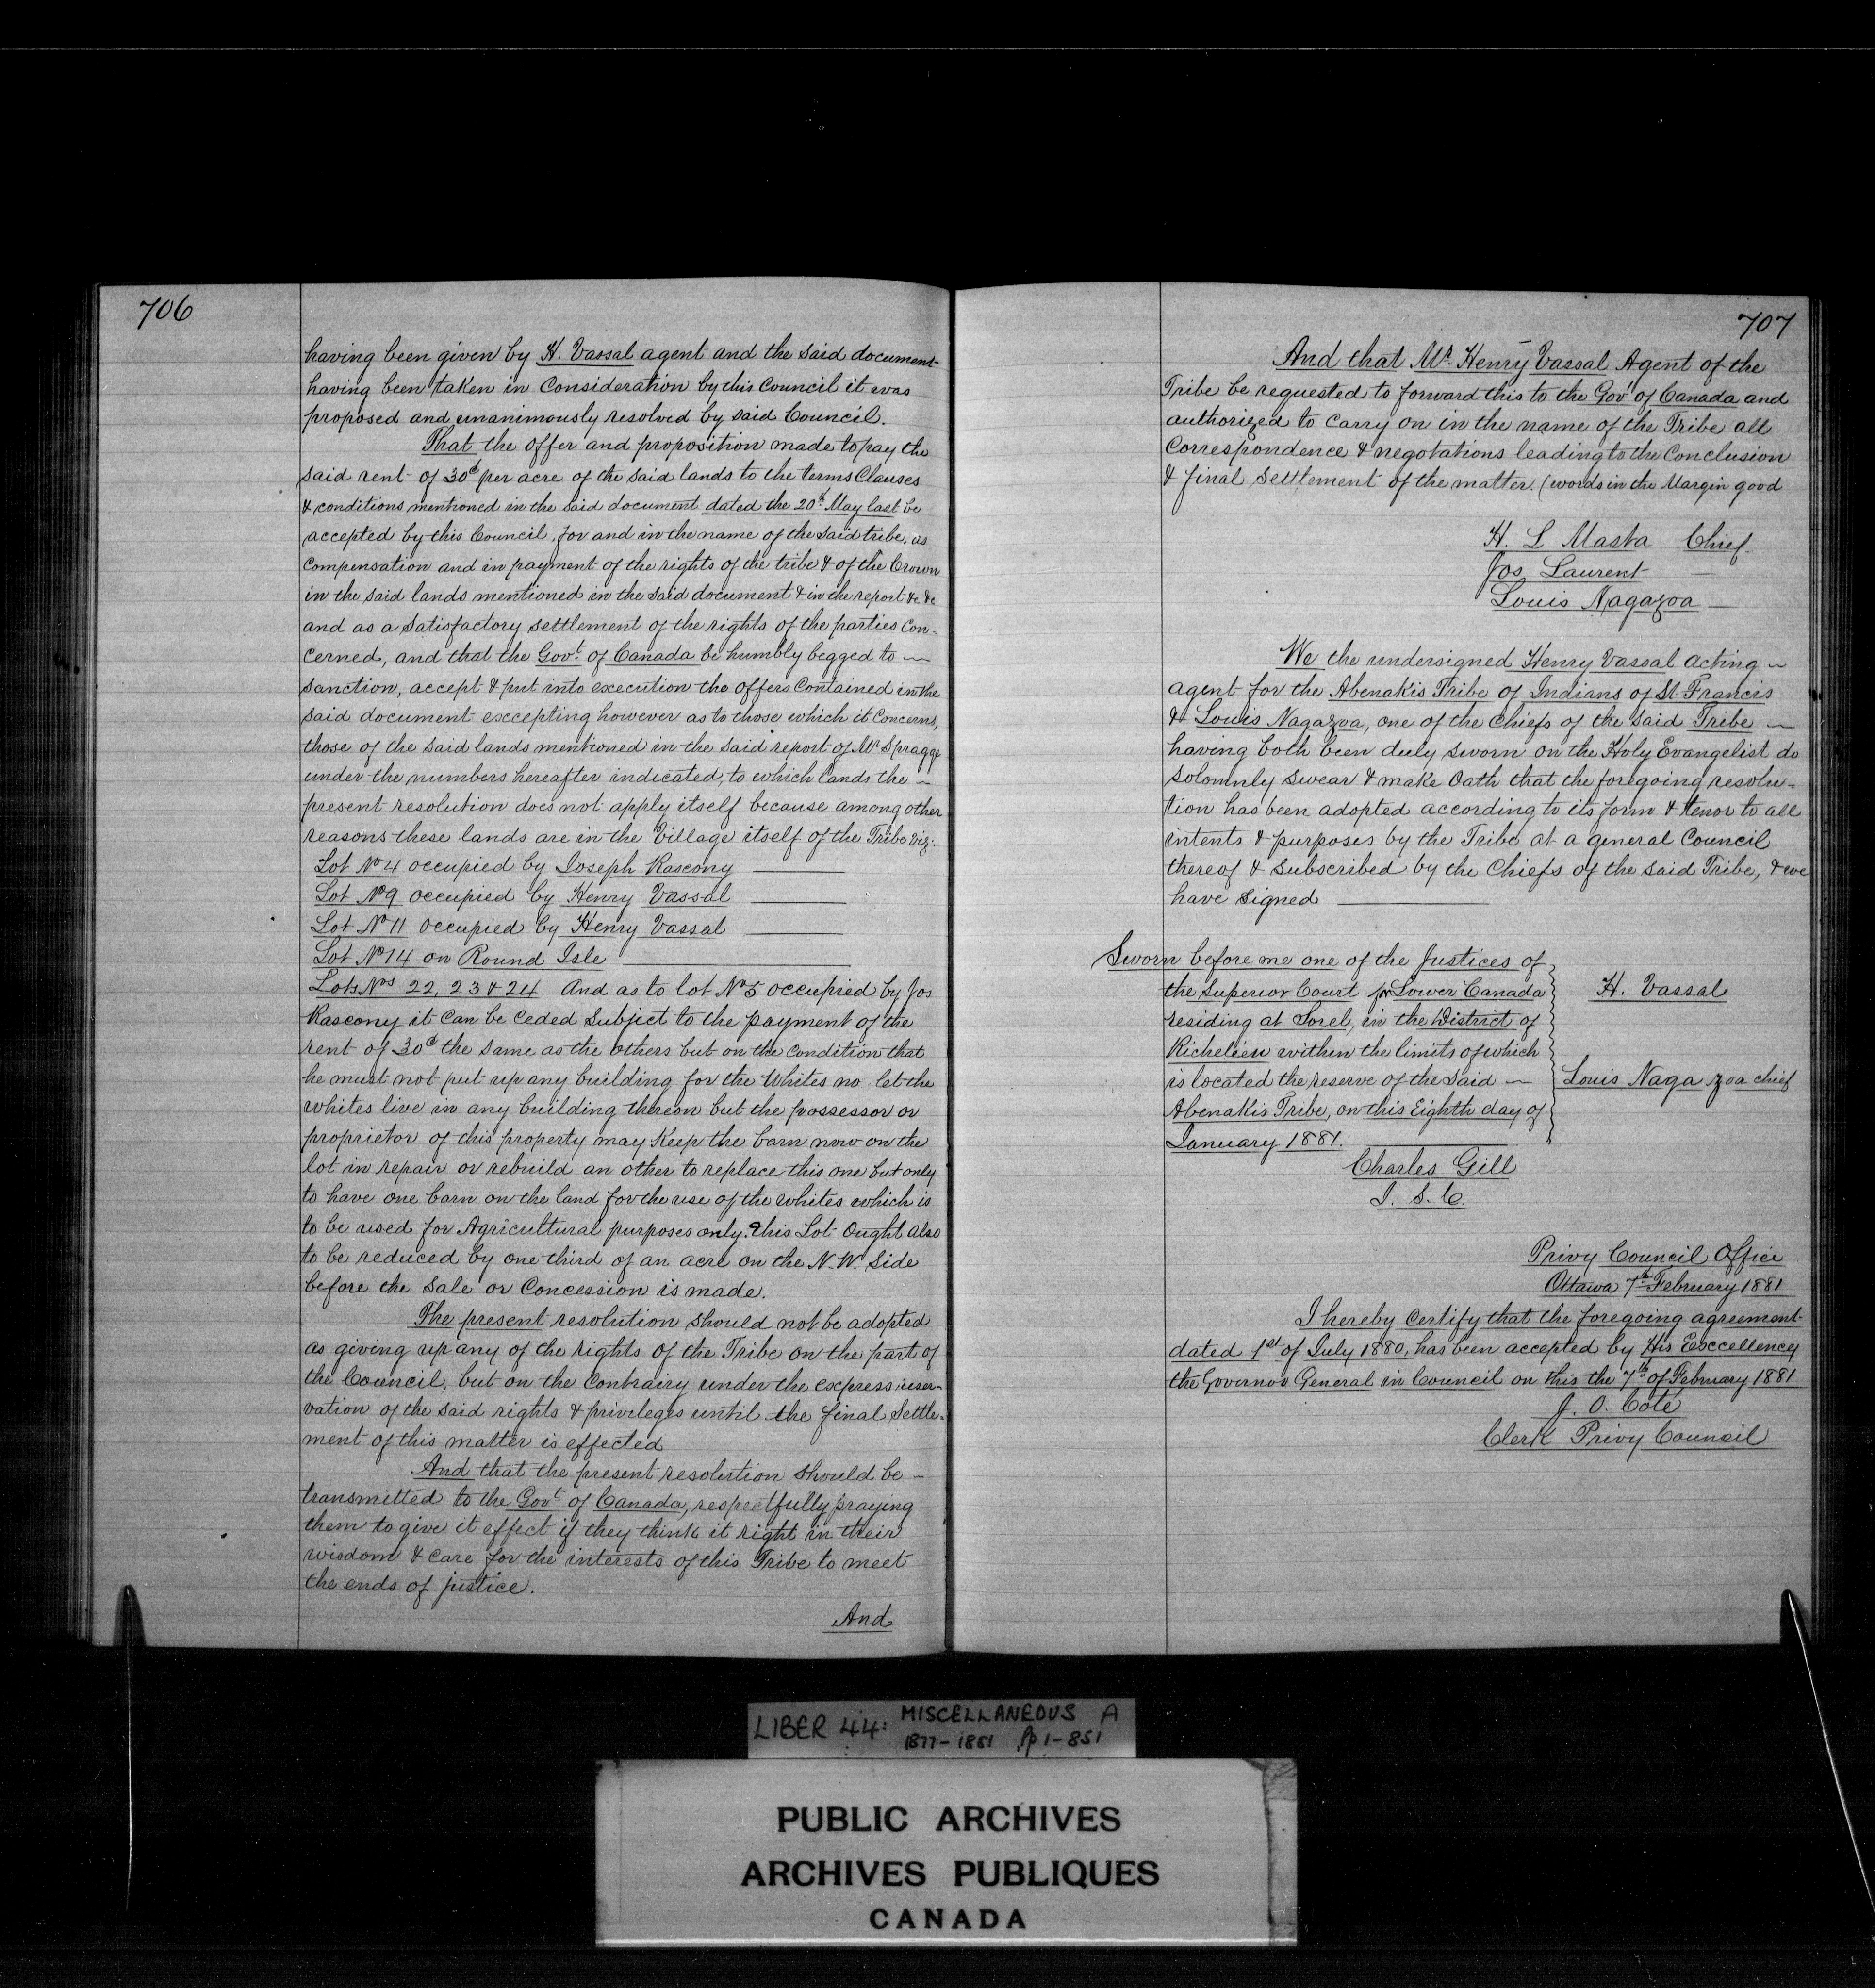 706
having been given by H. Vassal agent and the said document
having been taken in Consideration by this Council it was
proposed and unanimously resolved by said Council.
That the offer and proposition made to pay the
said rent of 30d per acre of the said lands to the terms Clauses
& conditions mentioned in the said document dated the 20th May last be
accepted by this Council, for and in the name of the said tribe, as
Compensation and in payment of the rights of the tribe & of the Crown
in the said lands mentioned in the said document & in the report &c &c
and as a Satisfactory settlement of the rights of the parties Con-
cerned, and that the Govt. of Canada be humbly begged to —
Sanction, accept & put into execution the offers Contained in the
said document excepting however as to those which it Concerns,
those of the said lands mentioned in the said report of Mr Spragge
under the numbers hereafter indicated, to which lands the —
present resolution does not apply itself because among other
reasons these lands are in the Village itself of the Tribe viz:
Lot No 4 occupied by Joseph Rascony
Lot No 9 occupied by Henry Vassal
Lot No 11 occupied by Henry Vassal
Lot No 14 on Round Isle
Lots Nos 22, 23 & 24 And as to lot No 5 occupied by Jos
Rascony it can be ceded Subject to the payment of the
rent of 30d the same as the others but on the condition that
he must not put up any building for the Whites no let the
whites live in any building thereon but the possessor or
proprietor of this property may Keep the barn now on the
lot in repair or rebuild an other to replace this one but only
to have one barn on the land for the use of the whites which is
to be used for Agricultural purposes only. This Lot Ought also
to be reduced by one third of an acre on the N.W. Side
before the Sale or Concession is made.
The present resolution should not be adopted
as giving up any of the rights of the Tribe on the part of
the Council, but on the Contrairy under the express reser-
vation of the said rights & privileges until the final Settle-
ment of this matter is effected
And that the present resolution should be —
transmitted to the Govt. of Canada, respectfully praying
them to give it effect if they think it right in their
wisdom & care for the interests of this Tribe to meet
the ends of justice.
And
707
And that Mr. Henry Vassal Agent of the
Tribe be requested to forward this to the Govt of Canada and
authorized to Carry on in the name of the Tribe all
Correspondence & negotations leading to the Conclusion
& final settlement of the matter. (words in the Margin good
H. L Masta Chief.
Jos Laurent —
Louis Nagazoa —
We the undersigned Henry Vassal acting —
agent for the Abenakis Tribe of Indians of St Francis
& Louis Nagazoa, one of the Chiefs of the said Tribe —
having both been duly sworn on the Holy Evangelist do
Solomnly swear & make Oath that the foregoing resolu-
tion has been adopted according to its form & tenor to all
intents & purposes by the Tribe at a general Council
thereof & subscribed by the Chiefs of the said Tribe, & we
have signed
Sworn before me one of the Justices of
the Superior Court for Lower Canada
H. Vassal
residing at Sorel, in the District of
Richelieu within the limits of which
is located the reserve of the said —
Louis Naga zoa chief
Abenakis Tribe, on this Eighth day of
January 1881.
Charles Gill
J. S. C.
Privy Council Office
Ottawa 7th February 1881
I hereby Certify that the foregoing agreement
dated 1st of July 1880, has been accepted by His Excellency
the Governor General in Council on this the 7th of February 1881
J. O. Coté
Clerk Privy Council
LIBER 44: MISCELLANEOUS A
1877-1881 Pp 1-851
PUBLIC ARCHIVES
ARCHIVES PUBLIQUES
CANADA